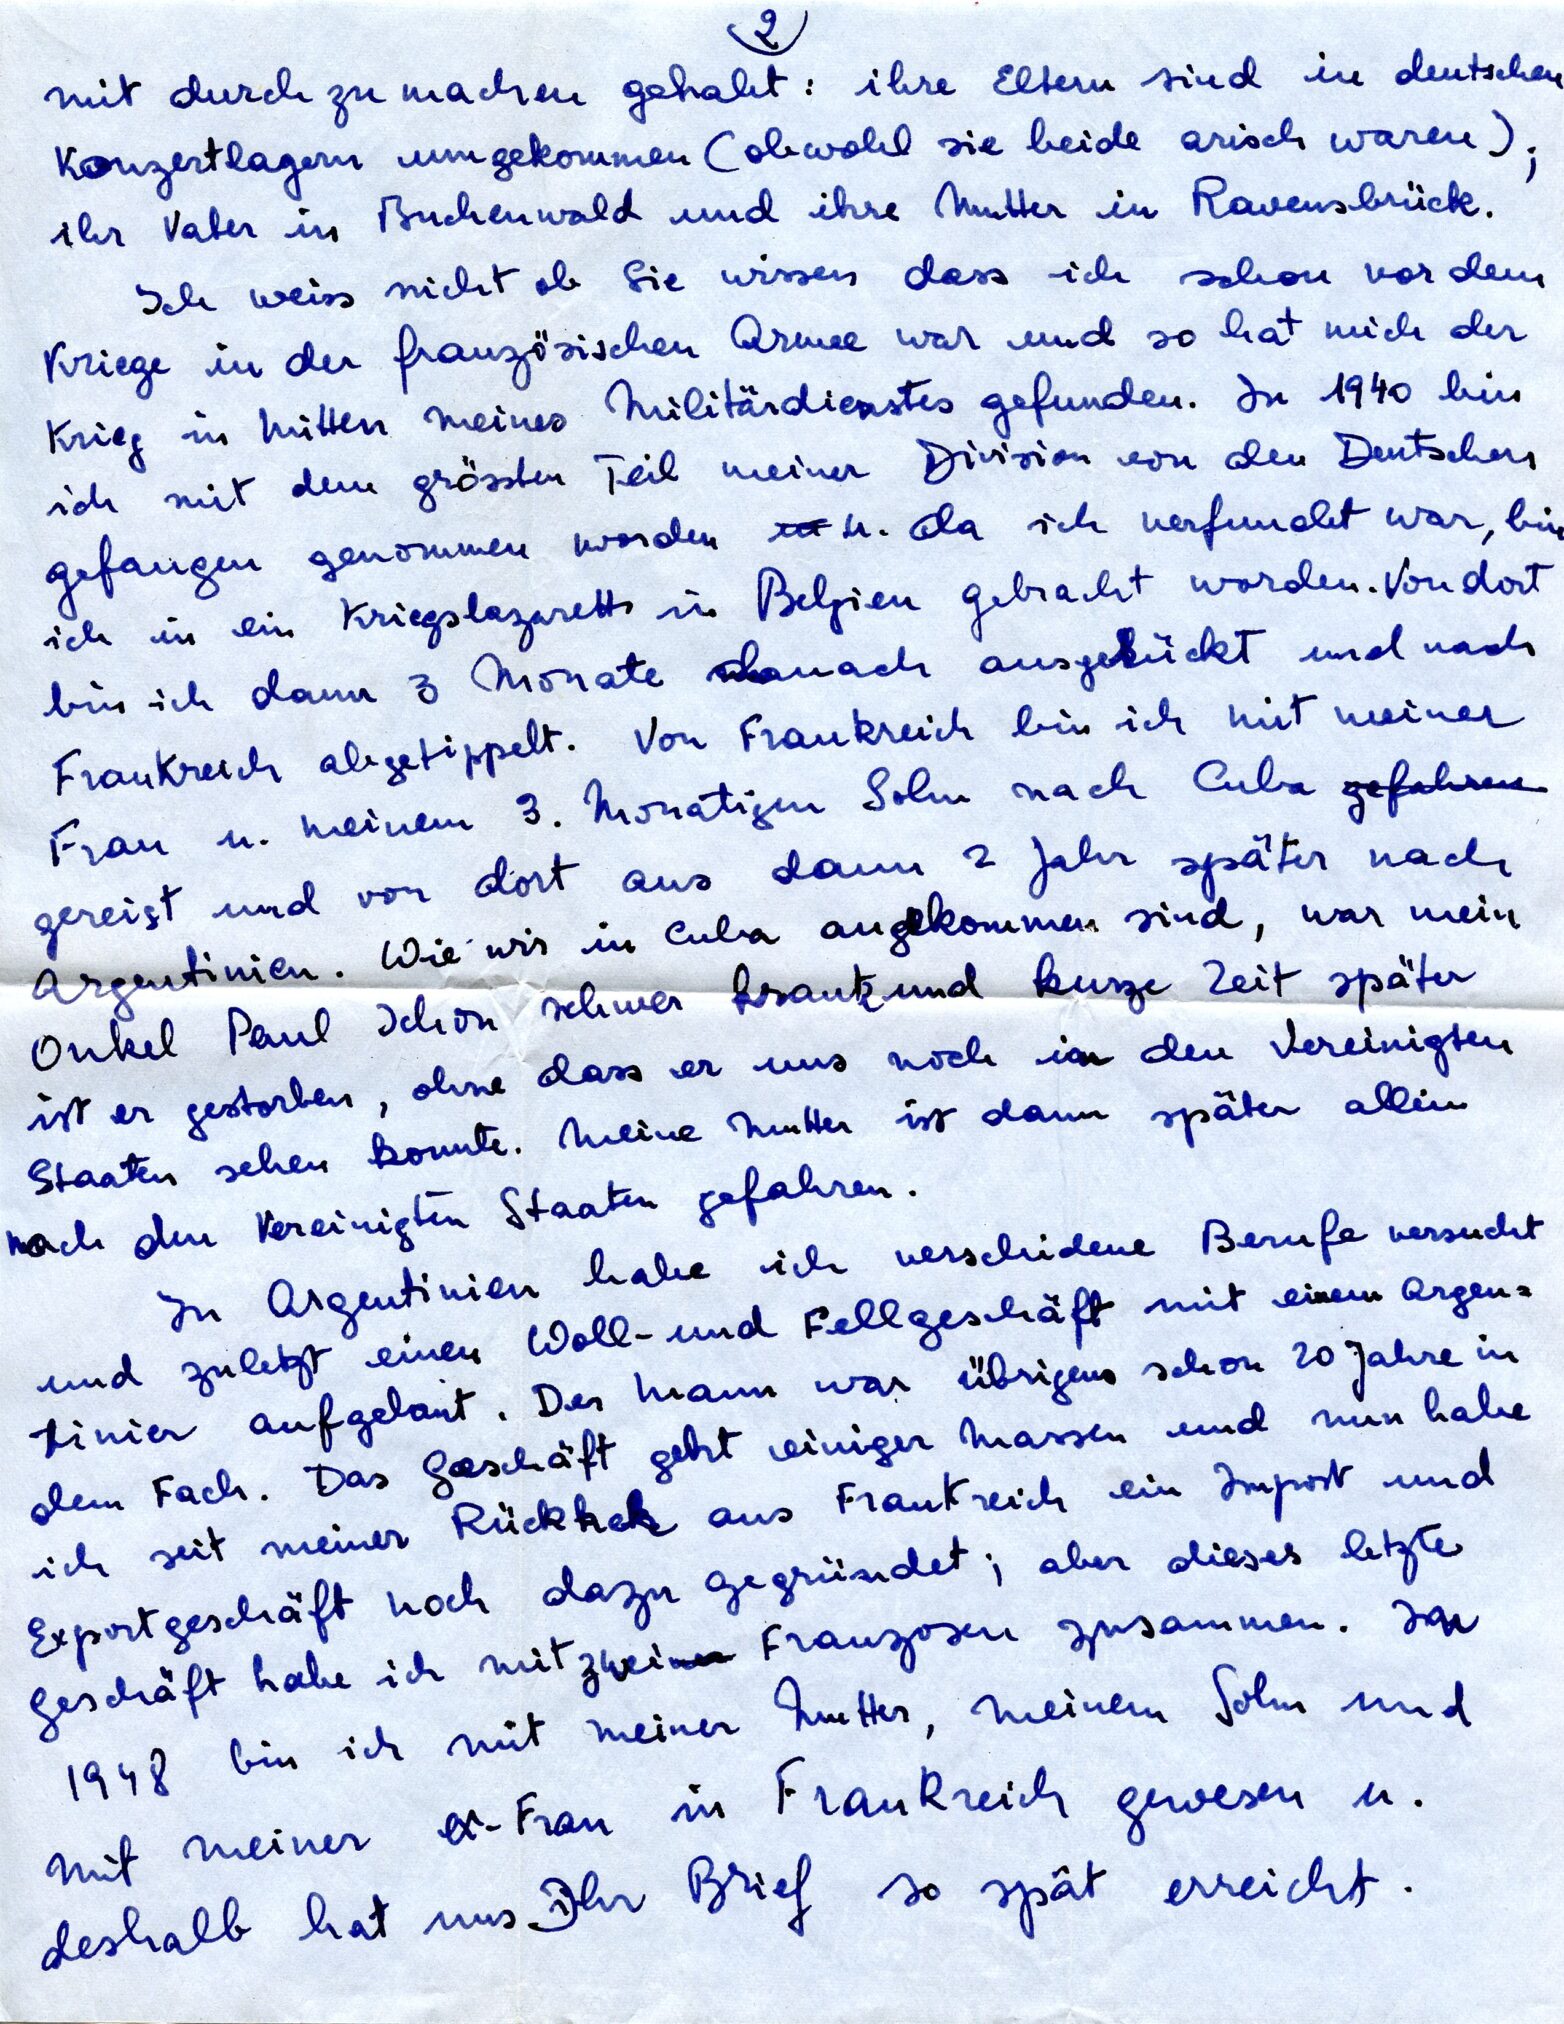 2
mit durchzumachen gehabt: ihre Eltern sind in deutschen
Konzertlagern umgekommen (obwohl sie beide arisch waren);
ihr Vater in Buchenwald und ihre Mutter in Ravensbrück.
Ich weiss nicht ob Sie wissen dass ich schon vor dem
Kriege in der französischen Armee war und so hat mich der
Krieg in Mitten meines Militärdienstes gefunden. In 1940 bin
ich mit dem grössten Teil meiner Division von den Deutschen
gefangen genommen worden u. da ich verfundet war, bin
ich in ein Kriegslazarett in Belgien gebracht worden. Von dort
bin ich dann 3 Monate danach ausgerückt und nach
Frankreich abgetippelt. Von Frankreich bin ich mit meiner
Frau u. meinem 3. Monatigen Sohn nach Cuba gefahren
gereist und von dort aus dann 2 Jahr später nach
Argentinien. Wie wir in Cuba angekommen sind, war mein
Onkel Paul schon schwer krank und kurze Zeit später
ist er gestorben, ohne dass er uns noch in den Vereinigten
Staaten sehen konnte. Meine Mutter ist dann später allein
nach den Vereinigten Staaten gefahren.
In Argentinien habe ich verschidene Berufe versucht
und zuletzt einen Woll- und Fellgeschäft mit einem Argen=
tinier aufgebaut. Der Mann war übrigens schon 20 Jahre in
dem Fach. Das Geschäft geht einiger Massen und nun habe
ich seit meiner Rückkehr aus Frankreich ein Import und
Exportgeschäft noch dazu gegründet; aber dieses letzte
Geschäft habe ich mit zwei Franzosen zusammen. In
1948 bin ich mit meiner Mutter, meinem Sohn und
mit meiner ex-Frau in Frankreich gewesen u.
deshalb hat uns Ihr Brief so spät erreicht.